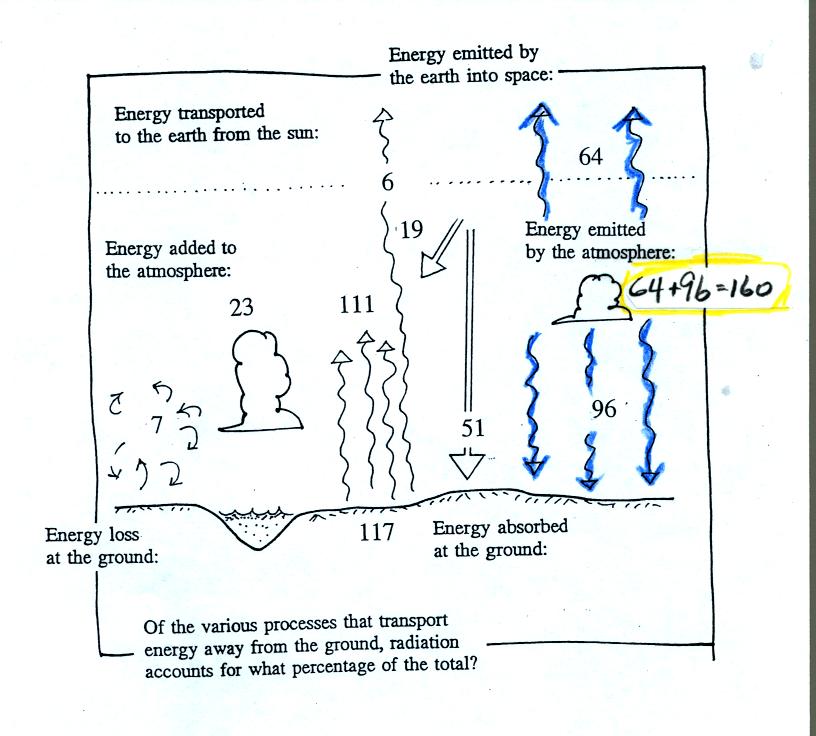 Energy emitted by
the earth into space:
Energy transported
to the earth from the sun:
64
6
19
Energy emitted
by the atmosphere:
Energy added to
the atmosphere:
64+96=160
23
111
96
7
51
Energy loss
at the ground:
117
Energy absorbed
at the ground:
Of the various processes that transport
energy away from the ground, radiation
accounts for what percentage of the total?